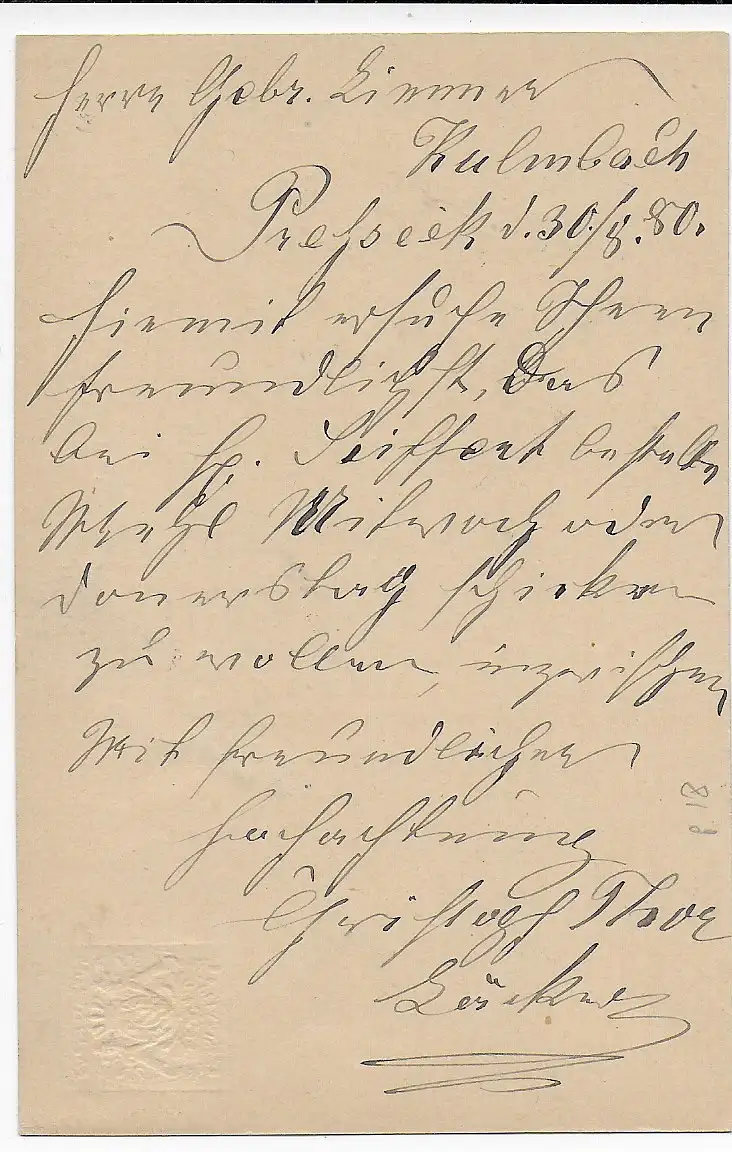 Herrn Gebr. Limmer
Kulmbach
Preßeck d. 30./8. 80.
Hiemit ersuche Ihnen
freundlichst, Das
bei H. Seiffert bestelte
Mehl Mitwoch oder
Donerstag schicken
zu wollen, inzwischen
Mit freundlicher
Hochachtung
Christoph Thor
Bäcker